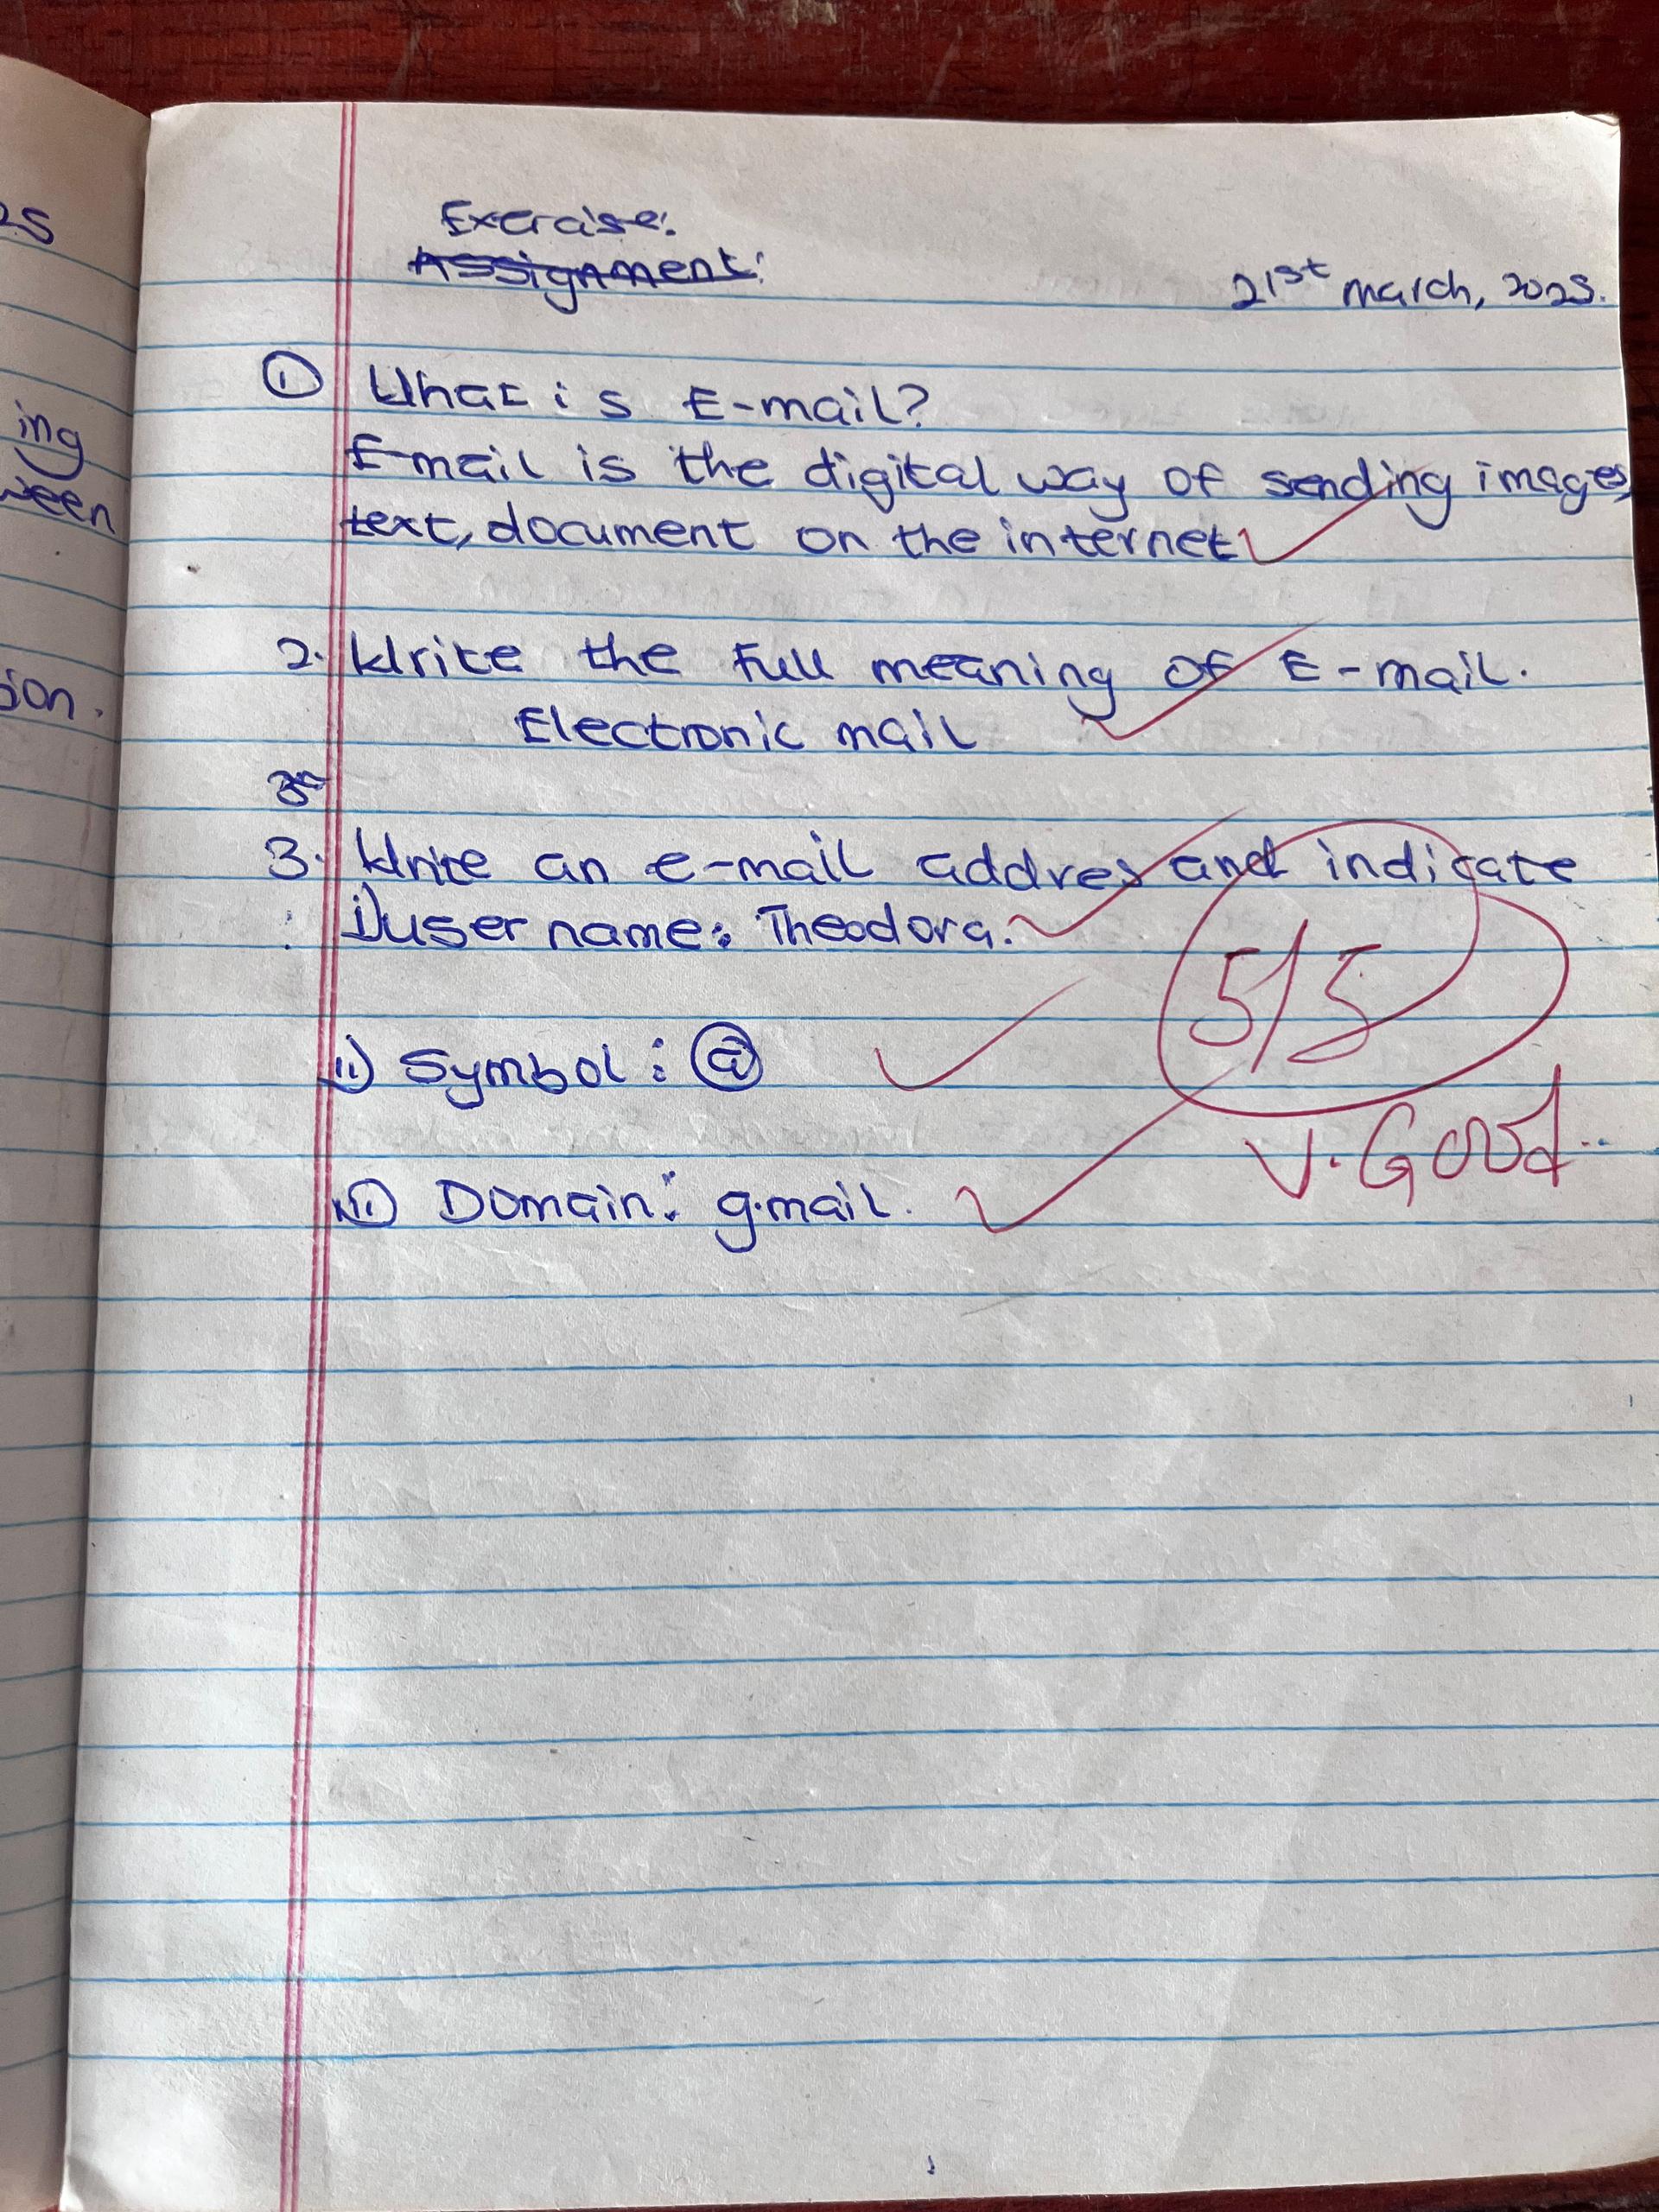 25
ing
ween
ion.
Exercise:
Assignment:
21st march, 2025.
① What is E-mail?
E-mail is the digital way of sending images,
text, document on the internet
2. Write the full meaning of E-mail.
Electronic mail
3. Write an e-mail addres and indicate
i) user name: Theodora.
5/5
ii) Symbol: @
V. Good
iii) Domain: g.mail.